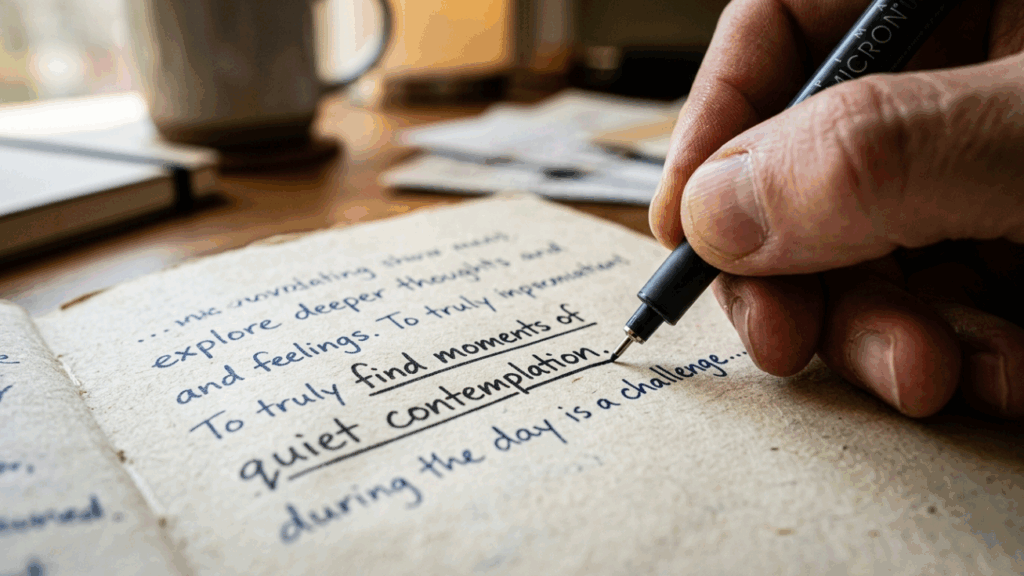 explore deeper thoughts and
and feelings. To truly
To truly find moments of
quiet contemplation.
during the day is a challenge...
MICRON